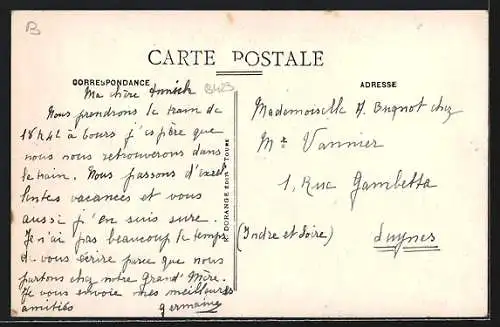 B
CARTE POSTALE
CORRESPONDANCE
ADRESSE
Ma chère Annick
Nous prendrons le train de
18h42 à Tours j'espère que
nous nous retrouverons dans
le train. Nous passons d'excel
lentes vacances et vous
aussi j'en suis sure.
Je n'ai pas beaucoup le temps
de vous écrire parce que nous
partons chez notre Grand'Mère.
Je vous envoie mes meilleures
amitiés Germaine
R. DORANGE EDIT. TOURS
Mademoiselle A. chez
Mr Vannier
1, Rue Gambetta
(Indre et Loire) Luynes